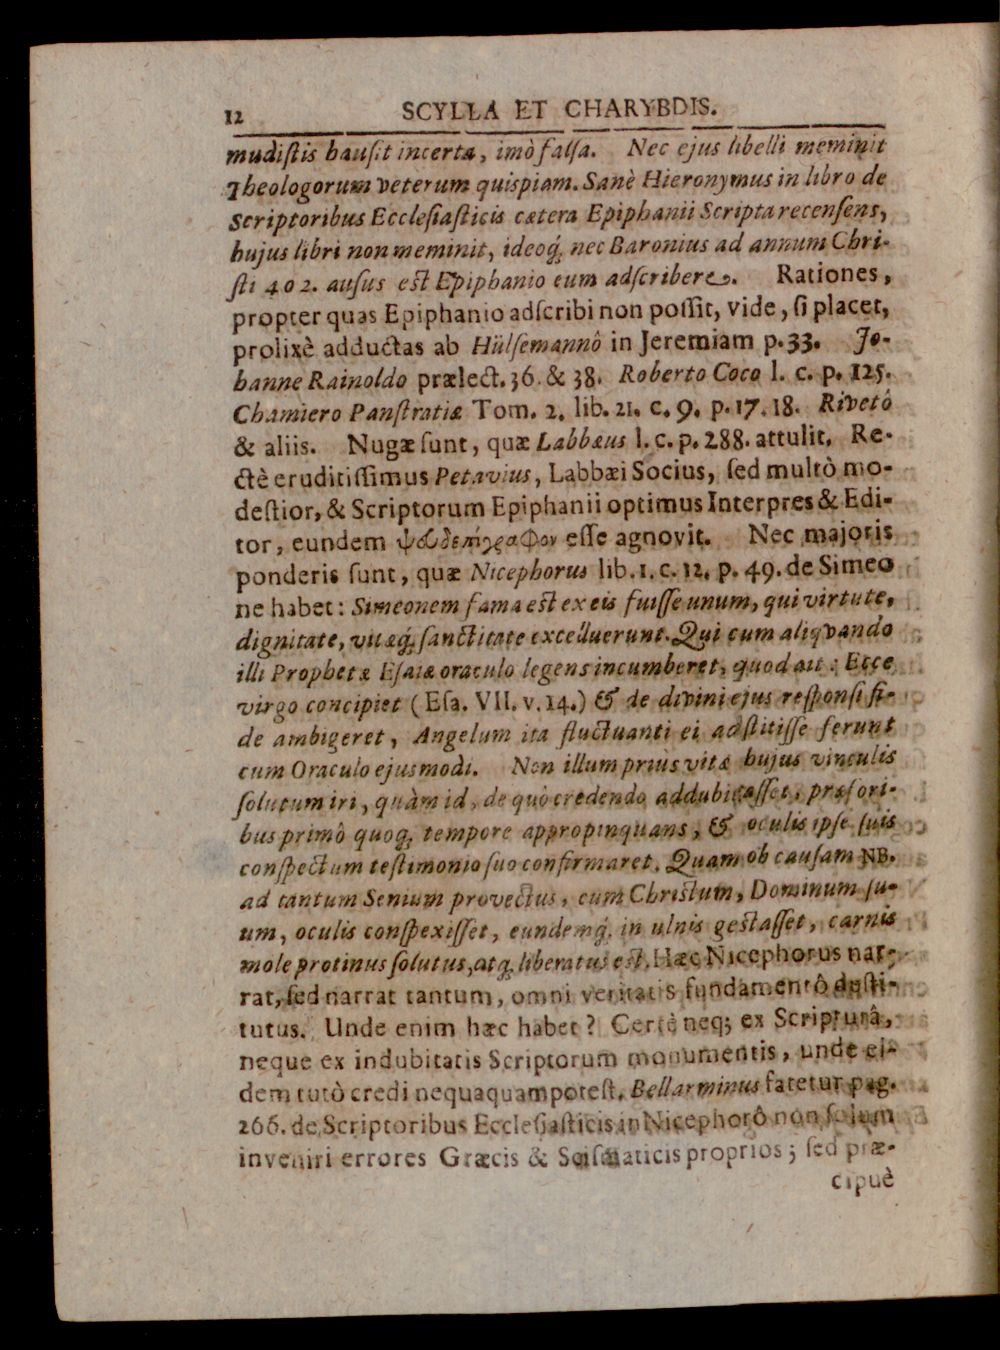 12 SCYLLA ET CHARYBDIS.
mudiſtis hauſit incerta, imò falſa. Nec ejus libelli meminit
Theologorum veterum quispiam. Sanè Hieronymus in libro de
Scriptoribus Eccleſiaſticis cætera Epiphanii Scripta recenſens,
hujus libri non meminit, ideoq́; nec Baronius ad annum Chri-
ſti 402. auſus eſt Epiphanio eum adſcribere. Rationes,
propter quas Epiphanio adſcribi non poſſit, vide, ſi placet,
prolixè adductas ab Hülſemannô in Jeremiam p. 33. Jo-
hanne Rainoldo prælect. 36. & 38. Roberto Coco l. c. p. 125.
Chamiero Panſtratiæ Tom. 2. lib. 21. c. 9. p. 17. 18. Rivetô
& aliis. Nugæ ſunt, quæ Labbæus l. c. p. 288. attulit. Re-
ctè eruditiſſimus Petavius, Labbæi Socius, ſed multò mo-
deſtior, & Scriptorum Epiphanii optimus Interpres & Edi-
tor, eundem ψευδεπίγραφον eſſe agnovit. Nec majoris
ponderis ſunt, quæ Nicephorus lib. 1. c. 12. p. 49. de Simeo
ne habet: Simeonem fama eſt ex eis fuiſſe unum, qui virtute,
dignitate, vitæq́; ſanctitate excelluerunt. Qui cum aliqvando
illi Prophetæ Eſaiæ oraculo legens incumberet, quod ait: Ecce
virgo concipiet (Eſa. VII. v. 14.) & de divini ejus reſponſi fi-
de ambigeret, Angelum ita fluctuanti ei adſtitiſſe ferunt
cum Oraculo ejusmodi. Non illum priùs vitæ hujus vinculis
ſolutum iri, quàm id, de quô credendo addubitaſſet, præſori-
bus primô quoq; tempore appropinquans, & oculis ipſe ſuis
conſpectum teſtimonio ſuo confirmaret. Quam ob cauſam NB.
ad tantum Senium provectus, cum Chriſtum, Dominum ſu-
um, oculis conſpexiſſet, eundemq́; in ulnis geſtaſſet, carnis
mole protinus ſolutus, atq; liberatus eſt. Hæc Nicephorus nar-
rat, ſed narrat tantum, omni veritatis fundamentô deſti-
tutus. Unde enim hæc habet? Certè neq; ex Scripturâ,
neque ex indubitatis Scriptorum monumentis, unde ei-
dem tutò credi nequaquam poteſt. Bellarminus fatetur pag.
266. de Scriptoribus Eccleſiaſticis in Nicephorô non ſolum
inveniri errores Græcis & Sciſmaticis proprios; ſed præ-
cipuè